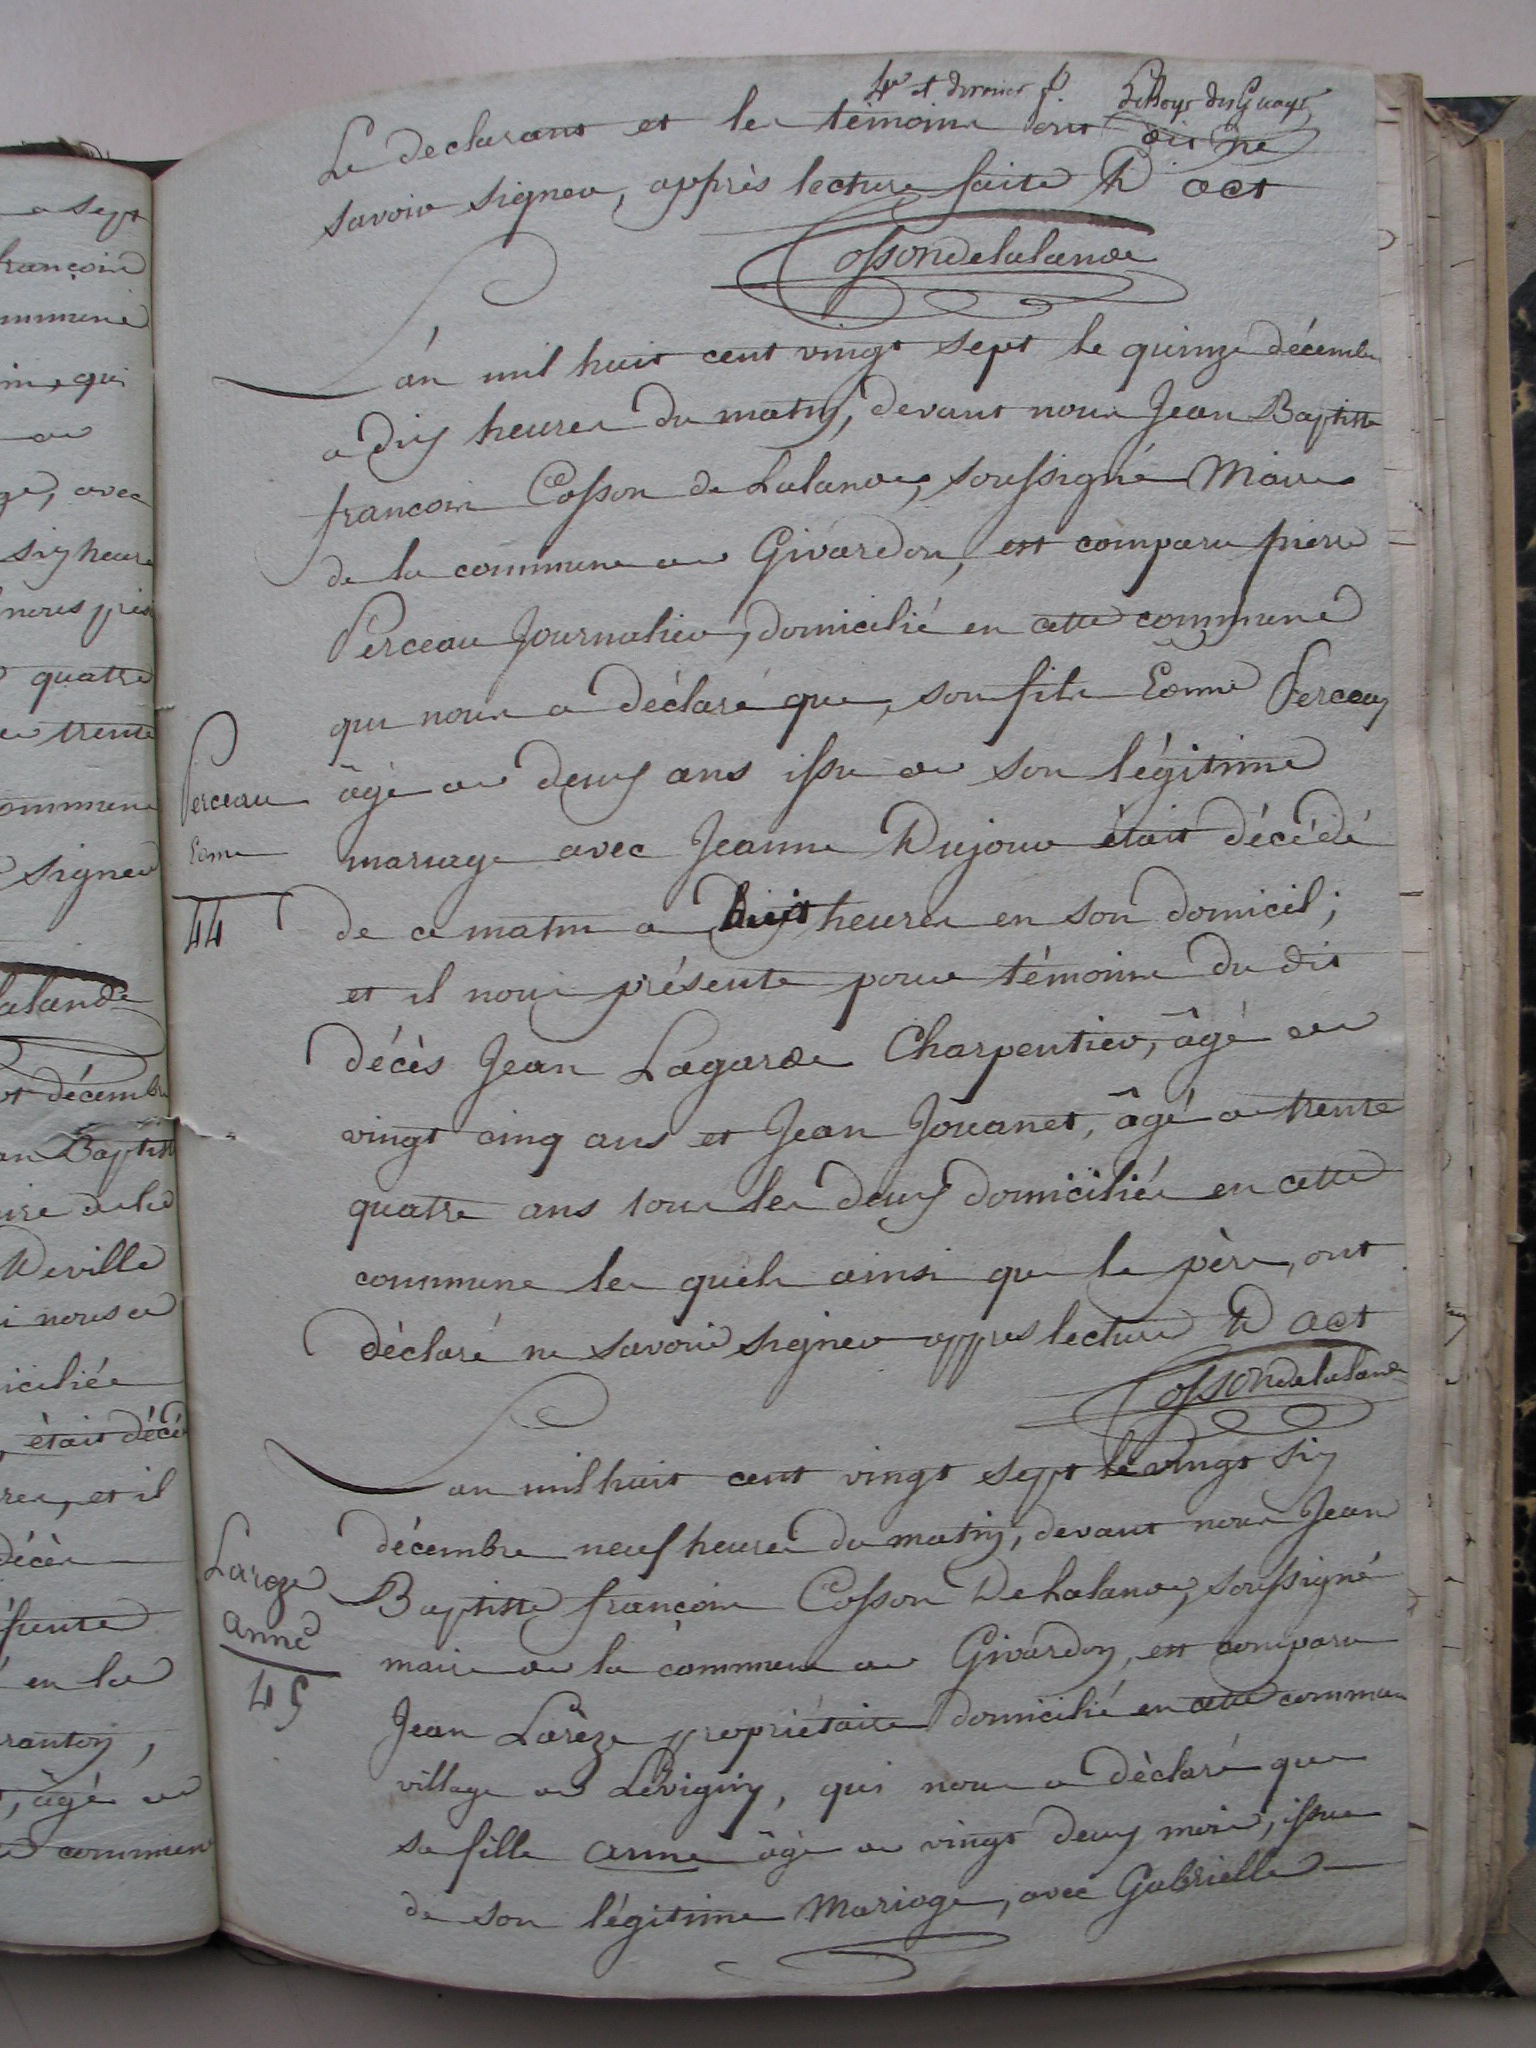 4e et dernier f.
Le declarant et les témoins ont dit ne
savoir signer, apprès lecture faite D act
Cossondelalande
L'an mil huit cent vingt sept le quinze décembre
a dix heures du matin, devant nous Jean Baptiste
francois Cosson de Lalande, soussigné Maire
de la commune de Givardon, est comparu pierre
Perceau Journalier, domicilié en cette commune
qui nous a déclaré que, son fils Edme Perceau
âgé de deux ans issu de son légitime
Perceau
Edme
44
mariage avec Jeanne Dujour était décédé
de ce matin a huit heures en son domicil;
et il nous présente pour témoins du dit
décès Jean Lagarde Charpentier, âgé de
vingt cinq ans et Jean Jouanet, âgé de trente
quatre ans tous les deux domiciliés en cette
commune les quels ainsi que le père, ont
déclaré ne savoir signer appres lecture D act
Cossondelalande
L'an mil huit cent vingt sept le vingt six
décembre neuf heures du matin, devant nous Jean
Baptiste françois Cosson De Lalande, soussigné
maire de la commune de Givardon, est comparu
Jean Larèze propriétaire domicilié en cette commune
village de Lévigny, qui nous a déclaré que
sa fille anne âgé de vingt deux mois, issue
de son légitime Mariage, avec Gabrielle
Lareze
anne
45
a sept
françois
commune
qui
de
avec
six heures
quatre
de trente
commune
signer
lalande
décembre
Jean Baptiste
maire de la
Deville
nous a
domiciliée
, était décédé
heures, et il
décès
présente
en la
, âgé de
commune